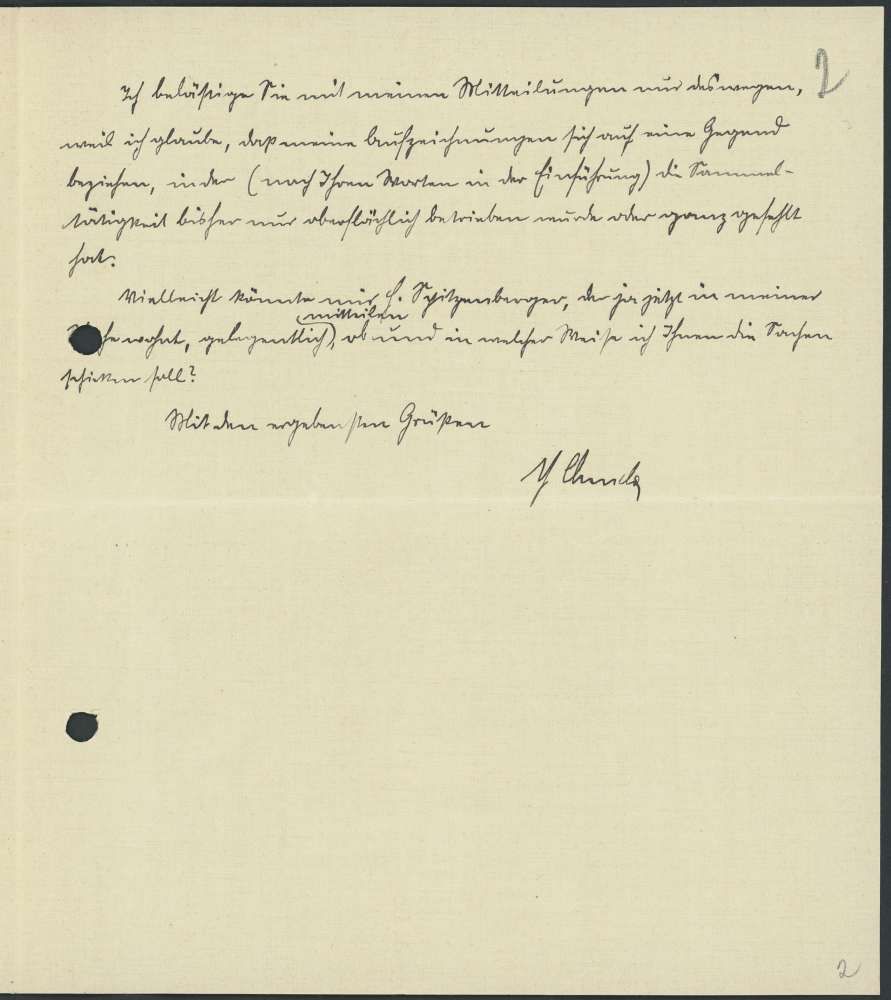 2
Ich belästige Sie mit meinen Mitteilungen nur deswegen,
weil ich glaube, daß meine Aufzeichnungen sich auf eine Gegend
beziehen, in der (nach Ihren Worten in der Einführung) die Sammel-
tätigkeit bisher nur oberflächlich betrieben wurde oder ganz gefehlt
hat.
Vielleicht könnte mir H. Spitzenberger, der ja jetzt in meiner
mitteilen
he wohnt, gelegentlich, ob und in welcher Weise ich Ihnen die Sachen
schicken soll?
Mit den ergebensten Grüßen
2